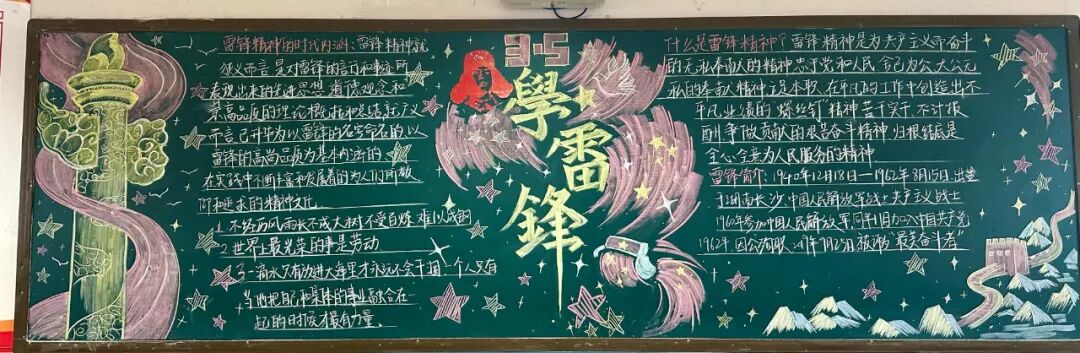 雷锋精神的时代内涵:雷锋精神就
领义而言是对雷锋的言行和事迹所
表现出来的先进思想 道德观念和
崇高品质的理论概括和总结就广义
而言已升华为以雷锋的名字命名的以
雷锋的高尚品质为基本内涵的
在实践中不断丰富和发展着的为人们所敬
仰和追求的精神文化
1 不经历风雨长不成大树 不受百炼 难以成钢
2 世界上最光荣的事是劳动
3 一滴水只有放进大海里才永远不会干涸 一个人只有
当他把自己和集体的事业融合在
一起的时候才最有力量.
3·5
學雷鋒
什么是雷锋精神?雷锋精神是为共产主义而奋斗
的无私奉献的精神忠于党和人民 舍己为公 大公无
私的奉献精神立足本职 在平凡的工作中创造出不
平凡业绩的"螺丝钉"精神苦干实干 不计报
酬 争做贡献的艰苦奋斗精神 归根结底是
全心全意为人民服务的精神
雷锋简介 1940年12月18日—1962年8月15日. 出生
于湖南长沙. 中国人民解放军战士 共产主义战士
1960年参加中国人民解放军 同年11月加入中国共产党
1962年 因公殉职. 9月25日 被评为"最美奋斗者"